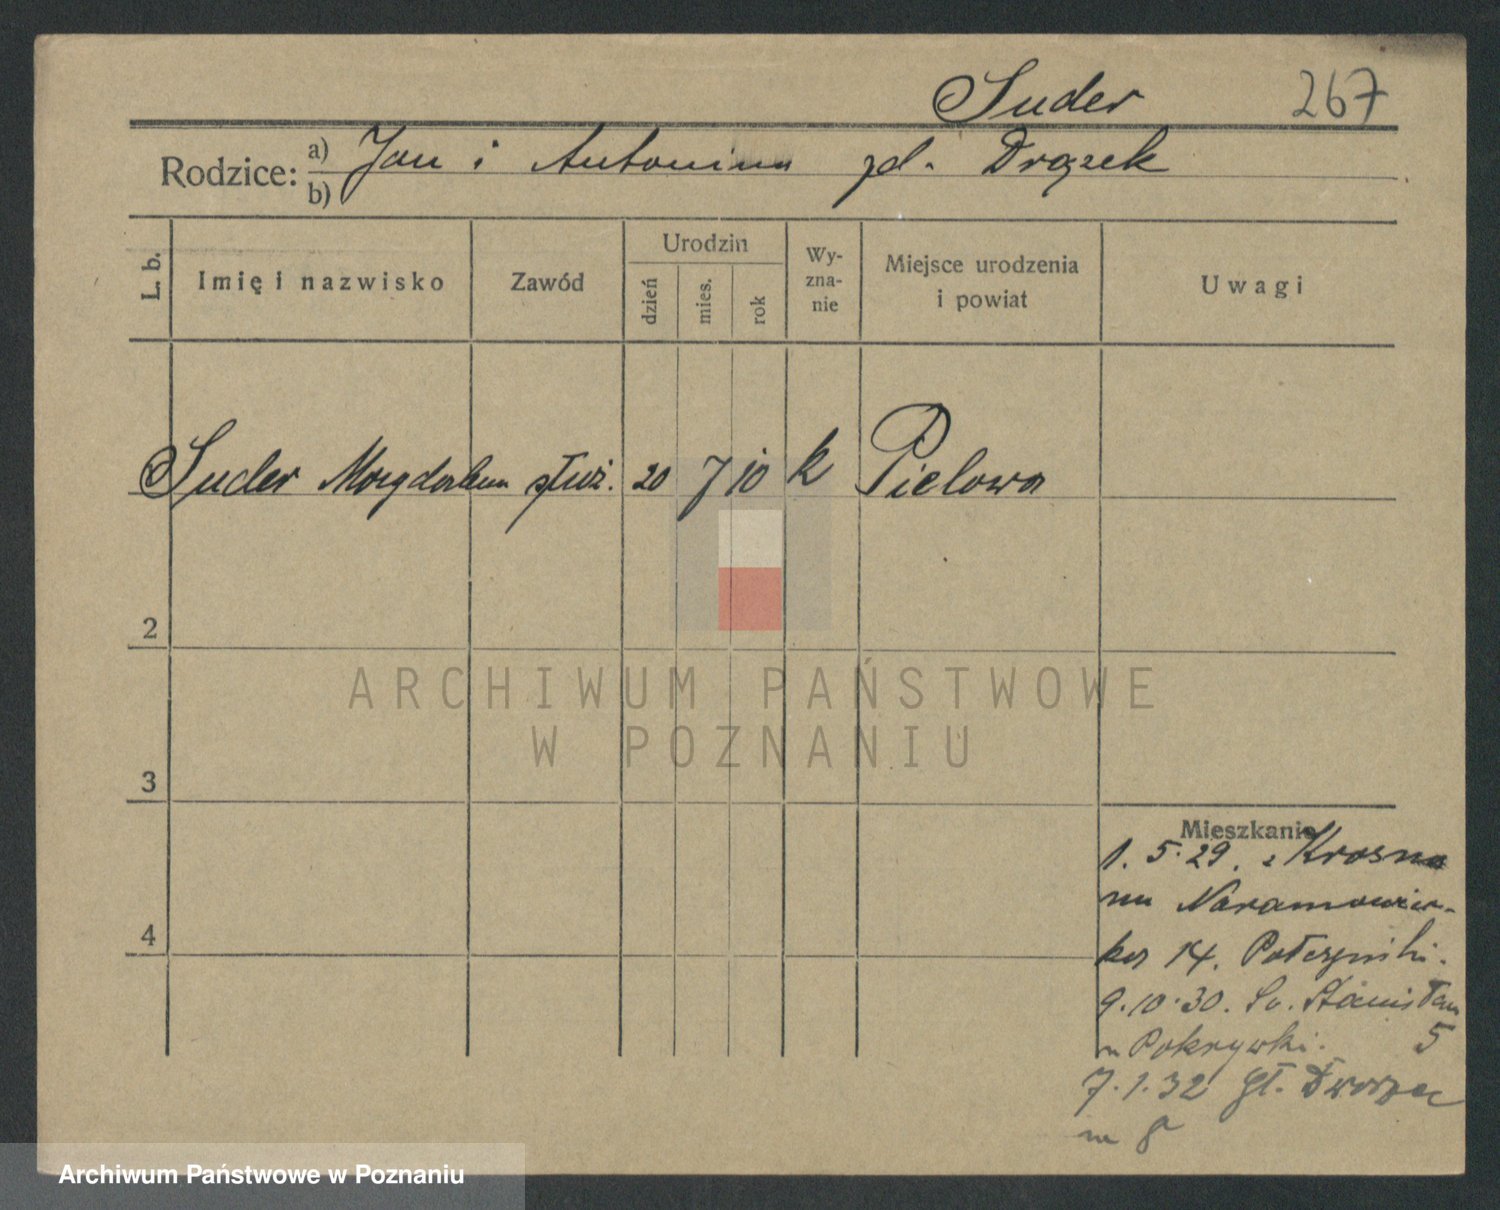 Suder 267
Rodzice: a) Jan i Antonina zd. Drązek
b)
L. b. Imię i nazwisko Zawód Urodzin Wy-zna-nie Miejsce urodzenia i powiat Uwagi
dzień mies. rok
Suder Magdalena służ. 20 7 10 k Pielowa
2
ARCHIWUM PAŃSTWOWE
W POZNANIU
3
Mieszkanie
1. 5. 29. z Krosna
na Naramowic-
4
ka 14.
9. 10. 30. Św. Stanisława
5
Pokrywki.
7. 1. 32 Gł. Dworzec
Archiwum Państwowe w Poznaniu